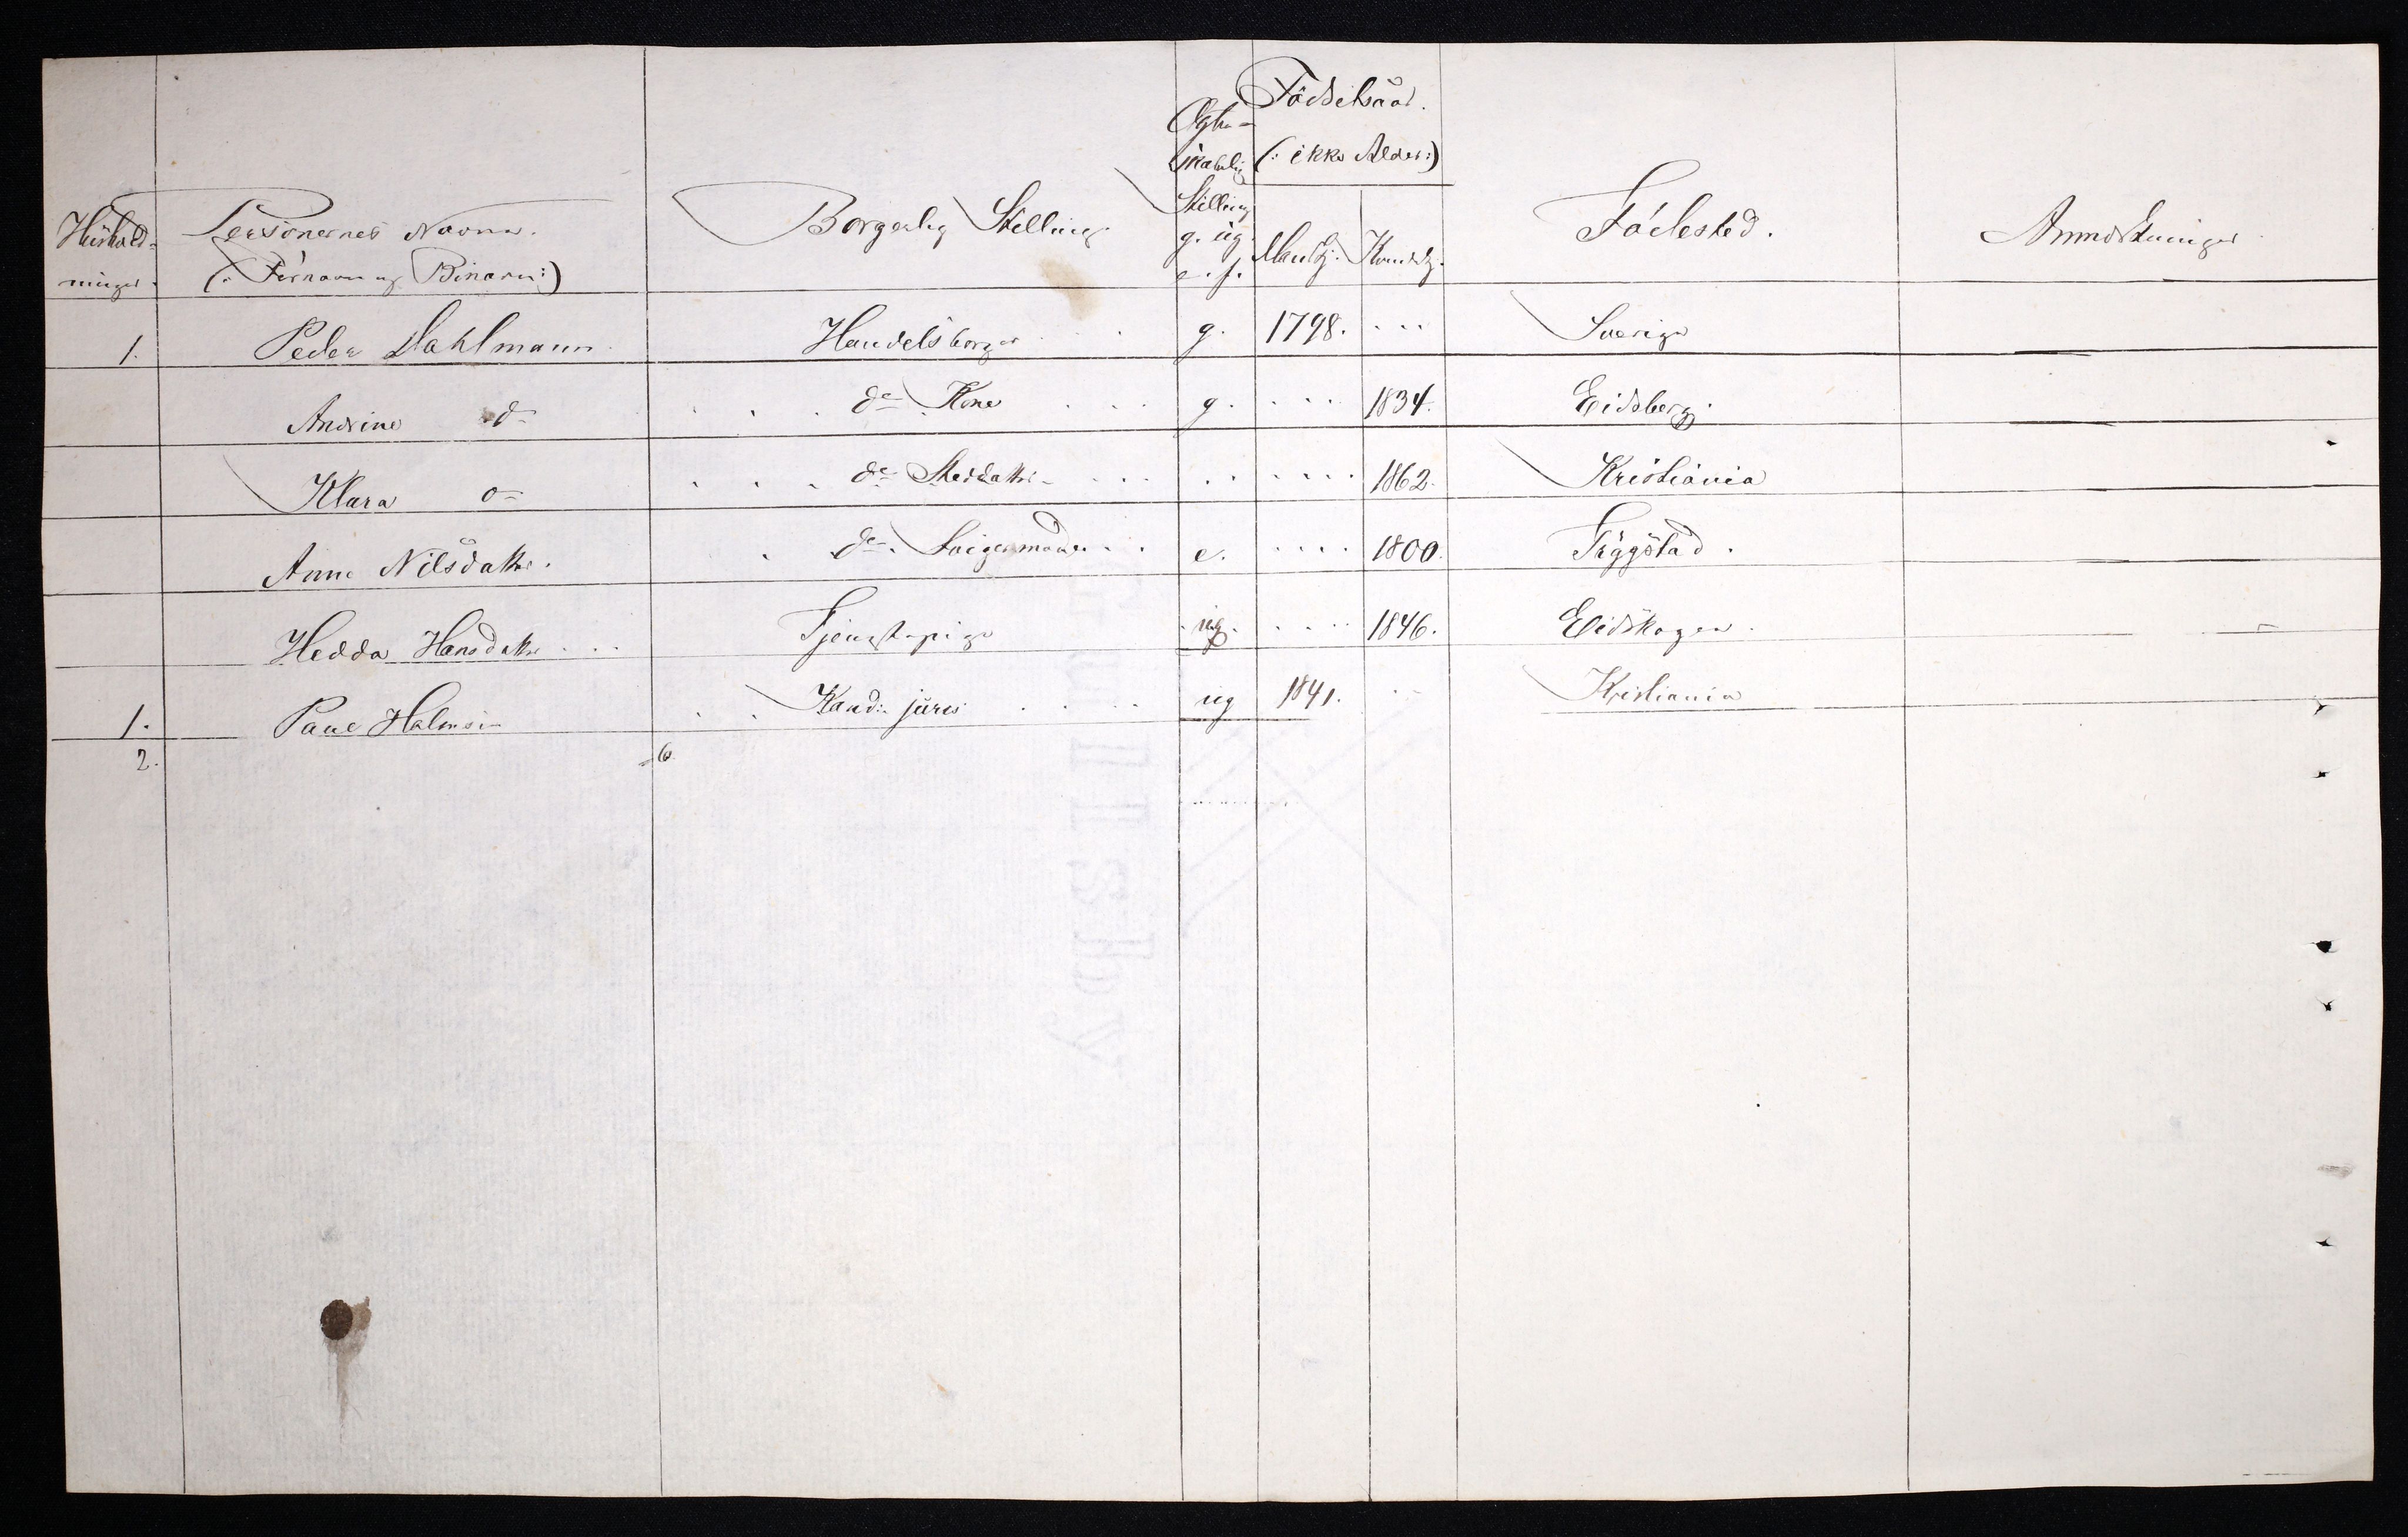 Husholdninger.	Personernes Navne. (: Fornavn og Binavn :)	Borgerlig Stilling.	Ægteskabelig Stilling g. ug. e. f.	Födselsaar. (: ikke Alder :)	Mandkj.	Kvindekj.	Födested.	Anmærkninger
1.	Peder Dahlmann	Handelsborger	g.	1798.	...	Sverige
Andrine do	do Kone	g.	...	1834.	Eidsberg.
Klara do	do Steddatter	..	....	1862.	Kristiania
Anne Nilsdatter.	do Svigermoder	e.	....	1800.	Tröggstad.
Hedda Hansdatter ...	Tjenestepige	ug.	....	1846.	Eidskogen.
1.	Paul	Kand: juris	ug	1841.	Kristiania
2.	6